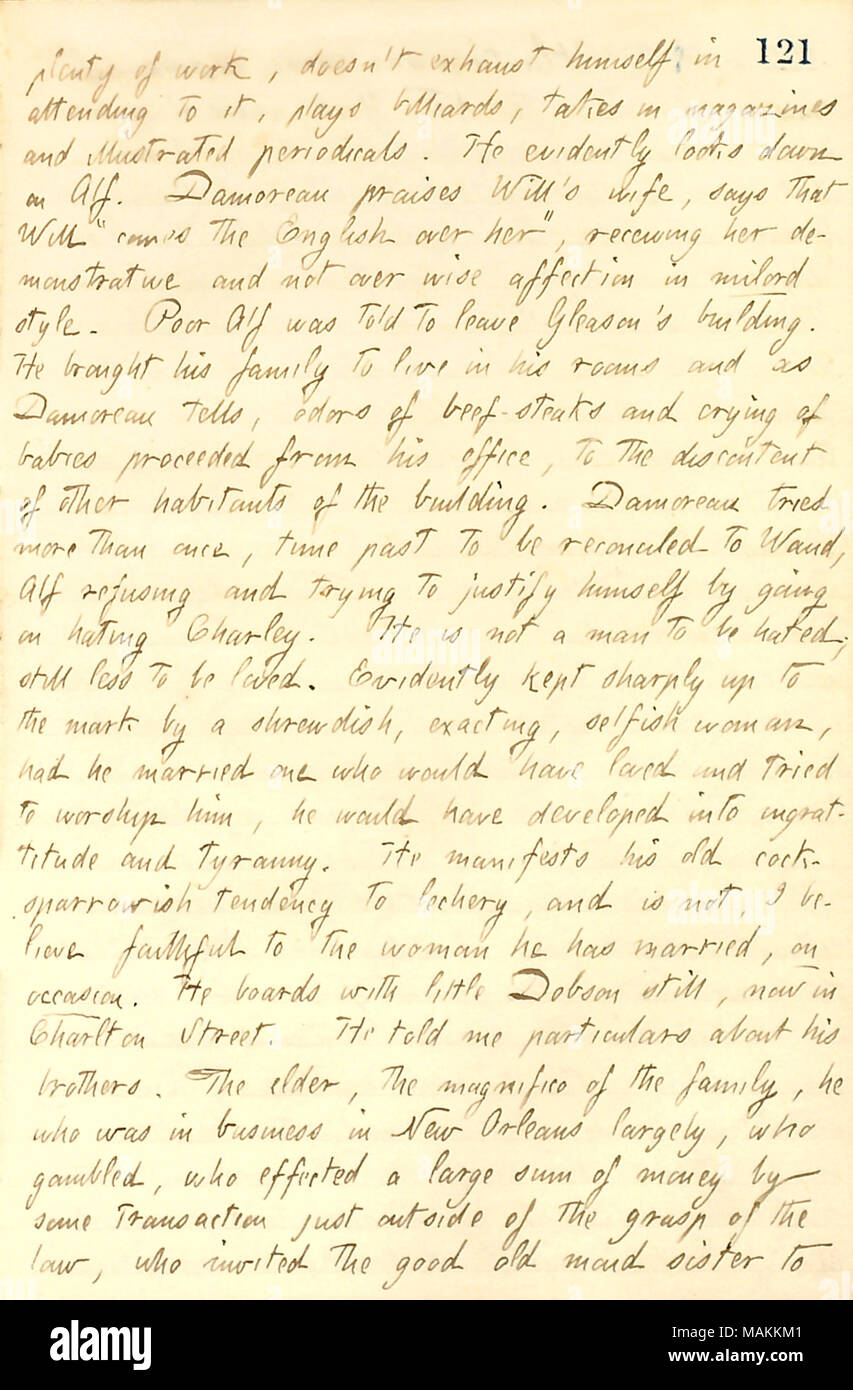 121
plenty of work, doesn't exhaust himself in
attending to it, plays billiards, takes in magazines
and illustrated periodicals. He evidently looks down
on Alf. Damoreau praises Will's wife, says that
Will "comes the English over her", receiving her de-
monstrative and not over wise affection in milord
style. Poor Alf was told to leave Gleason's building.
He brought his family to live in his rooms and as
Damoreau tells, odors of beef-steaks and crying of
babies proceeded from his office, to the discontent
of other habitants of the building. Damoreau tried
more than once, time past to be reconciled to Waud,
Alf refusing and trying to justify himself by going
on hating Charley. He is not a man to be hated;
still less to be loved. Evidently kept sharply up to
the mark by a shrewdish, exacting, selfish woman,
had he married one who would have loved and tried
to worship him, he would have developed into ingrat-
titude and tyranny. He manifests his old cock-
sparrowish tendency to lechery, and is not, I be-
lieve faithful to the woman he has married, on
occasion. He boards with little Dobson still, now in
Charlton Street. He told me particulars about his
brothers. The elder, the magnifico of the family, he
who was in business in New Orleans largely, who
gambled, who effected a large sum of money by
some transaction just outside of the grasp of the
law, who invited the good old maid sister to
alamy
Image ID: MAKKM1
www.alamy.com